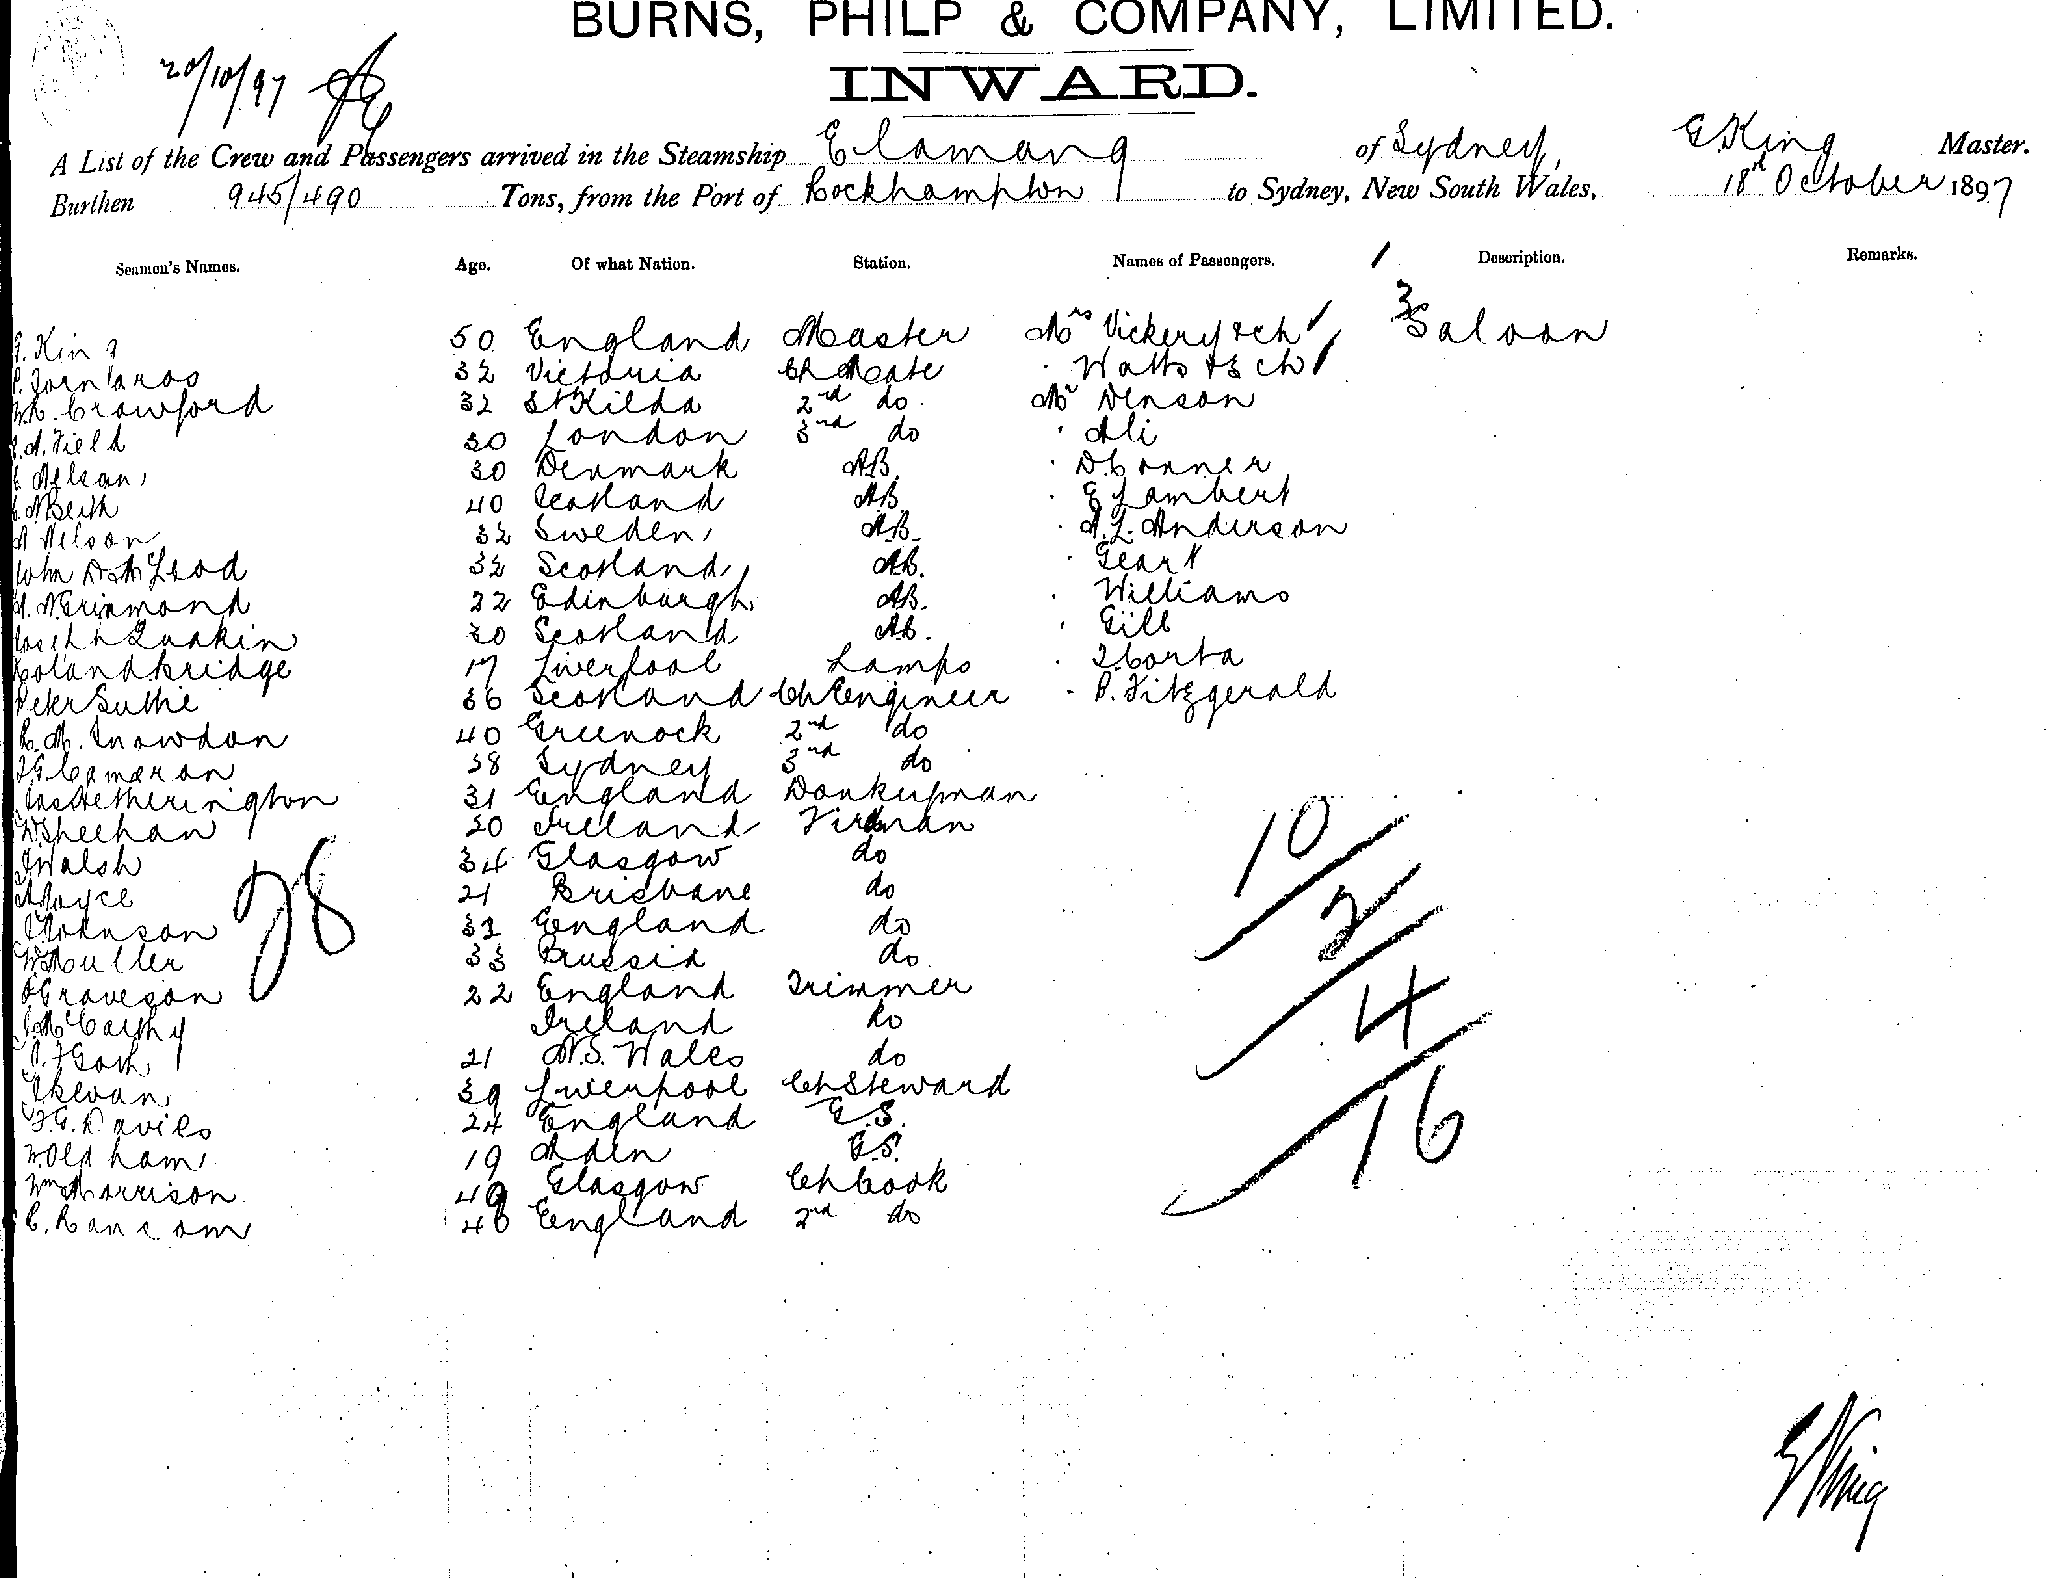 BURNS, PHILP & COMPANY, LIMITED.
INWARD.
20/10/97
A List of the Crew and Passengers arrived in the Steamship Elamang of Sydney, E. King Master.
Burthen 945/490 Tons, from the Port of Rockhampton to Sydney, New South Wales, 18th October 1897
Seamen's Names. Age. Of what Nation. Station. Names of Passengers. Description. Remarks.
E. King 50 England Master Mrs Vickery & ch 3 Saloon
32 Victoria Ch Mate " Watts & 3 ch
Crawford 32 St Kilda 2nd do Mr Denson
A. Field 30 London 3rd do " Ali
Nelson 30 Denmark AB. " D. Conner
McBeth 40 Scotland AB. " E Lambert
A Nelson 32 Sweden AB. " A. L. Anderson
John D McLeod 32 Scotland AB. " Geary
McCrimmond 22 Edinburgh AB. " Williams
Joseph Quakin 30 Scotland AB. " Gill
Roland Bridge 17 Liverpool Lamps " I. Corta
Peter Suttie 36 Scotland Ch Engineer " P. Fitzgerald
R. M. Snowdon 40 Greenock 2nd do
J G Cameron 38 Sydney 3rd do
Jas Hetherington 31 England Donkeyman
W Sheehan 30 Ireland Fireman
J Walsh 34 Glasgow do
A Joyce 21 Brisbane do
J Johnson 32 England do
W Muller 33 Prussia do
Graveson 22 England Trimmer
J McCarthy Ireland do
21 N. S. Wales do
J Bevan 39 Liverpool Ch Steward
F. G. Davies 24 England G. S.
W Oldham 19 Aden G. S.
Wm Morrison 49 Glasgow Ch Cook
C. Ransom 46 England 2nd do
28
10
2
4
16
E King